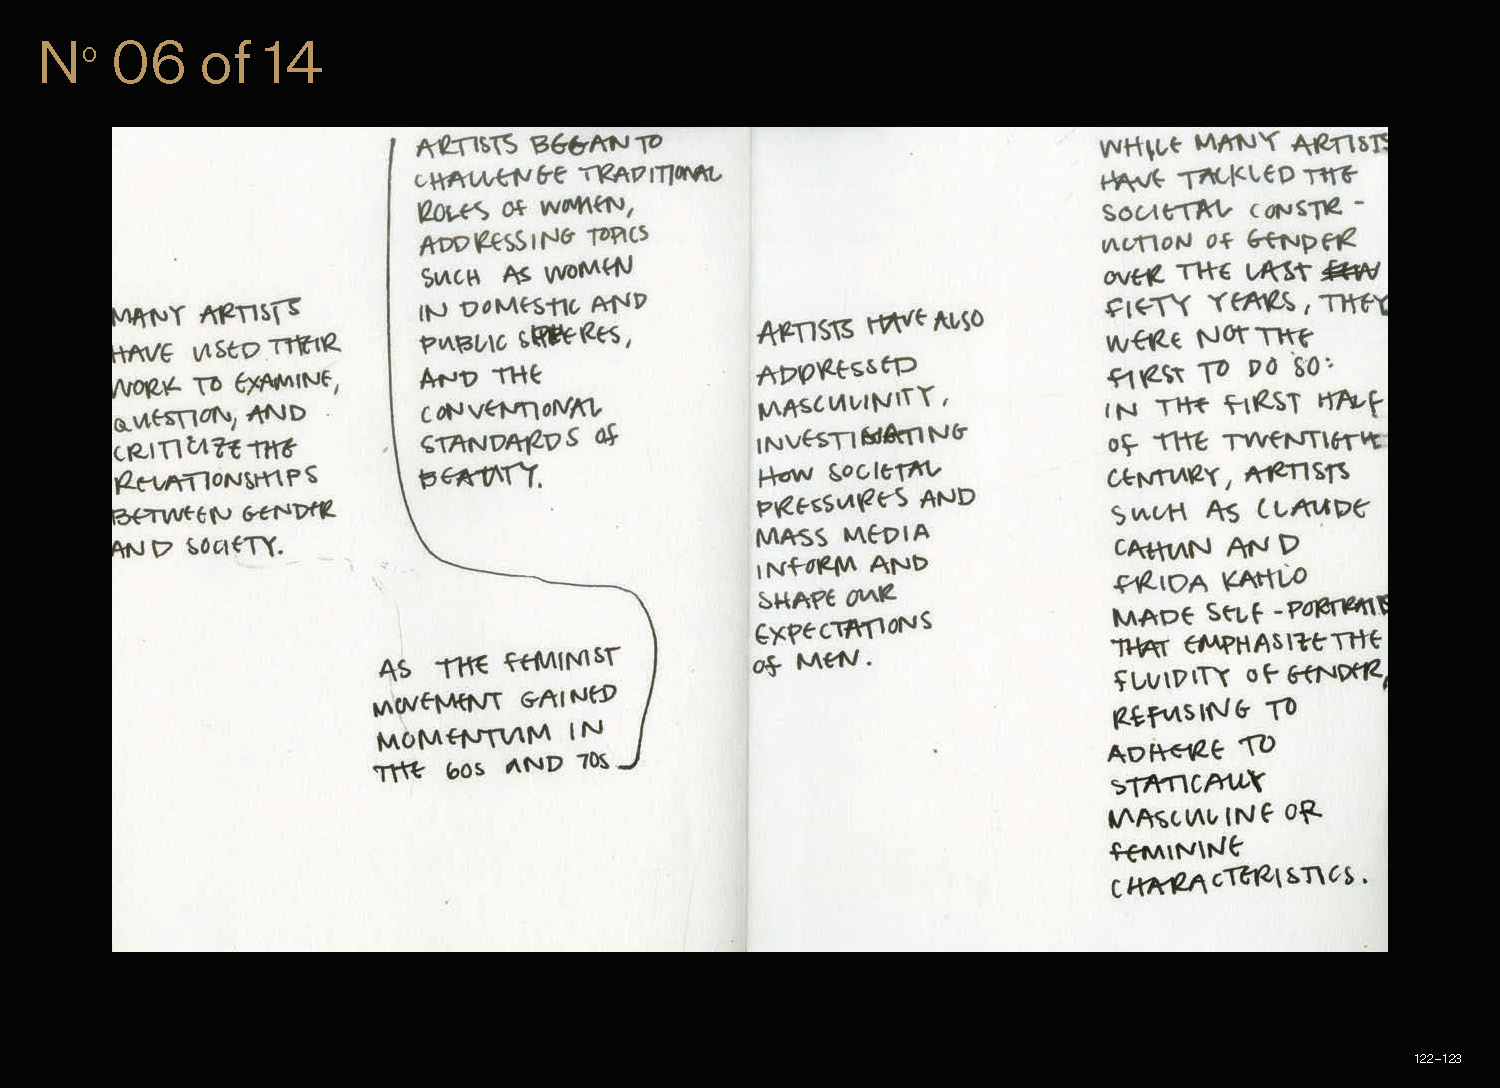 Nº 06 of 14
MANY ARTISTS
HAVE USED THEIR
WORK TO EXAMINE,
QUESTION, AND
CRITICIZE THE
RELATIONSHIPS
BETWEEN GENDER
AND SOCIETY.
AS THE FEMINIST
MOVEMENT GAINED
MOMENTUM IN
THE 60S AND 70S
ARTISTS BEGAN TO
CHALLENGE TRADITIONAL
ROLES OF WOMEN,
ADDRESSING TOPICS
SUCH AS WOMEN
IN DOMESTIC AND
PUBLIC SPHERES,
AND THE
CONVENTIONAL
STANDARDS OF
BEAUTY.
ARTISTS HAVE ALSO
ADDRESSED
MASCULINITY,
INVESTIGATING
HOW SOCIETAL
PRESSURES AND
MASS MEDIA
INFORM AND
SHAPE OUR
EXPECTATIONS
OF MEN.
WHILE MANY ARTISTS
HAVE TACKLED THE
SOCIETAL CONSTR-
UCTION OF GENDER
OVER THE LAST FEW
FIFTY YEARS, THEY
WERE NOT THE
FIRST TO DO SO:
IN THE FIRST HALF
OF THE TWENTIETH
CENTURY, ARTISTS
SUCH AS CLAUDE
CAHUN AND
FRIDA KAHLO
MADE SELF-PORTRAITS
THAT EMPHASIZE THE
FLUIDITY OF GENDER,
REFUSING TO
ADHERE TO
STATICALLY
MASCULINE OR
FEMININE
CHARACTERISTICS.
122–123